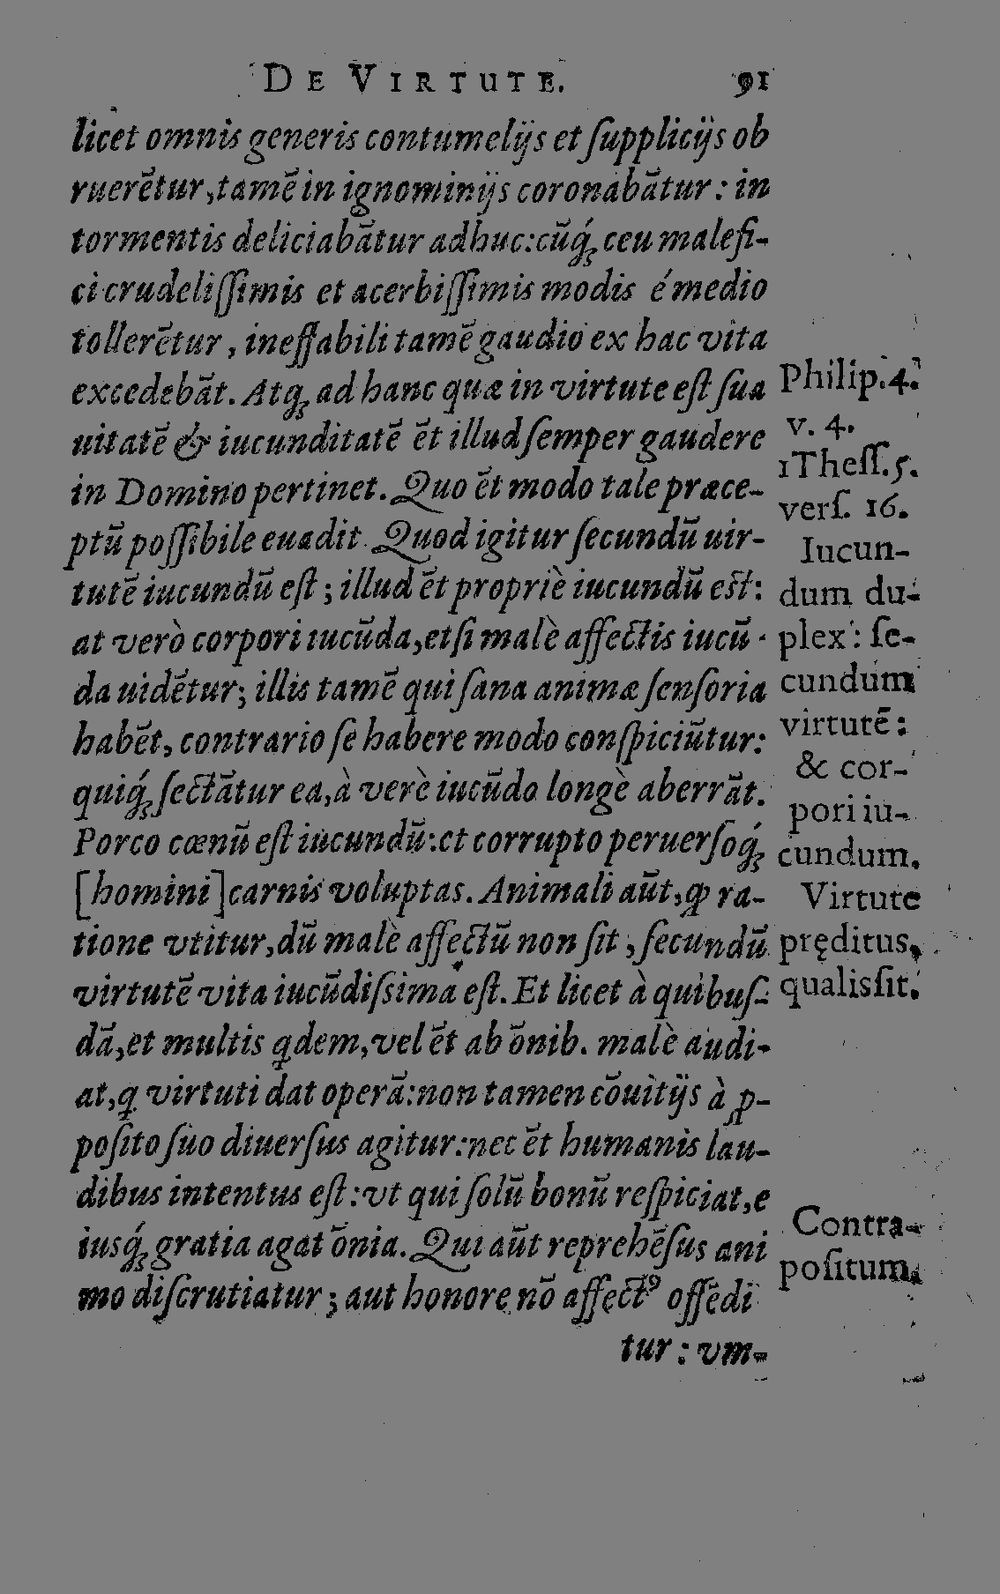 DE VIRTUTE. 91
licet omnis generis contumelijs et ſupplicijs ob
ruerētur, tamē in ignominijs coronabātur: in
tormentis deliciabātur adhuc: cūq́ꝫ ceu malefi-
ci crudeliſſimis et acerbiſſimis modis é medio
tollerētur, ineffabili tamē gaudio ex hac vita
excedebāt. Atqꝫ ad hanc quæ in virtute eſt ſua
uitatē & iucunditatē ēt illud ſemper gaudere
in Domino pertinet. Quo ēt modo tale præce-
ptū poſſibile euadit. Quod igitur ſecundū uir-
tutē iucundū eſt; illud ēt propriè iucundū eſt:
at verò corpori iucūda, etſi malè affectis iucū-
da uidētur; illis tamē qui ſana animæ ſenſoria
habēt, contrario ſe habere modo conſpiciūtur:
quiq́ꝫ ſectātur ea, à verè iucūdo longè aberrāt.
Porco cœnū eſt iucundū: et corrupto peruerſoq́ꝫ
[homini] carnis voluptas. Animali aūt, ꝙ ra-
tione vtitur, dū malè affectū non ſit, ſecundū
virtutē vita iucūdiſsima eſt. Et licet à quibuſ-
dā, et multis qͥdem, vel ēt ab ōnib. malè audi-
at, q virtuti dat operā: non tamen cōuitijs à ꝓ-
poſito ſuo diuerſus agitur: nec ēt humanis lau-
dibus intentus eſt: vt qui ſolū bonū reſpiciat, e
iusq́ꝫ gratia agat ōnia. Qui aūt reprehēſus ani
mo diſcrutiatur; aut honore nō affectꝰ offēdi
tur: vm-
Philip. 4.
v. 4.
1 Theſſ. 5.
verſ. 16.
Iucun-
dum du-
plex: ſe-
cundum
virtutē:
& cor-
pori iu-
cundum.
Virtute
pręditus,
qualis ſit.
Contra-
poſitum.